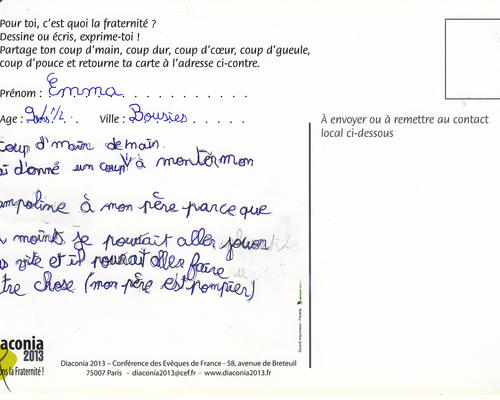 Pour toi, c'est quoi la fraternité ?
Dessine ou écris, exprime-toi !
Partage ton coup d'main, coup dur, coup d'cœur, coup d'gueule,
coup d'pouce et retourne ta carte à l'adresse ci-contre.
Prénom : Emma
Age : 9 ans 1/2 Ville : Bousies
À envoyer ou à remettre au contact
local ci-dessous
coup d'main de main.
ai d'onné un coup à montermon
ampoline à mon père parce que
moins je pouvait aller jouer
vite et il pouvait aller faire
tre chose (mon père est pompier)
iaconia
2013
ons la Fraternité !
Diaconia 2013 – Conférence des Evêques de France - 58, avenue de Breteuil
75007 Paris - diaconia2013@cef.fr - www.diaconia2013.fr